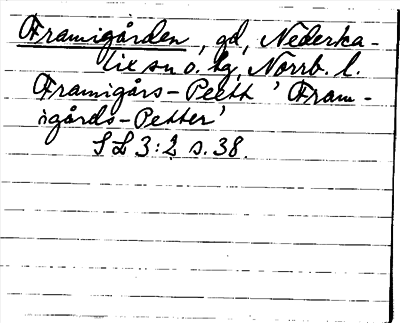 Framigården, gd, Nederka-
lix sn o. tg, Norrb. l.
Framigårs-Pectt 'Fram-
igårds-Petter'
SL 3:2 s. 38.